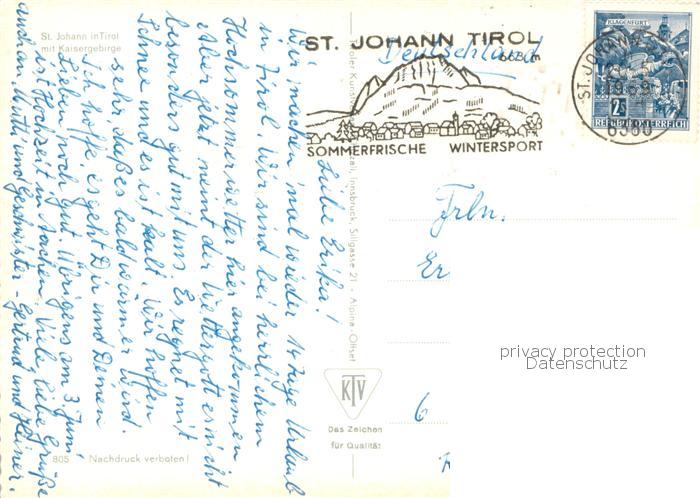 St. Johann in Tirol
mit Kaisergebirge
Liebe Erika!
Wir machen mal wieder 14 Tage Urlaub
in Tirol. Wir sind bei herrlichem
Hochsommerwetter hier angekommen
Aber jetzt meint der Wettergott es nicht
besonders gut mit uns. Es regnet mit
Schnee und es ist kalt. Wir hoffen
sehr daß es bald wärmer wird.
Ich hoffe es geht Dir und Deinen
Lieben noch gut. Übrigens am 3. Juni
ist Hochzeit in Aachen. Viele liebe Grüße
auch an Mutti und Geschwister - Gertrud und Heiner.
805 Nachdruck verboten!
Innsbruck, Sillgasse 21 - Alpina-Offset
ST. JOHANN TIROL
663 m
SOMMERFRISCHE WINTERSPORT
Deutschland
KLAGENFURT
2 S
REPUBLIK ÖSTERREICH
ST. JOHANN
6380
Frln.
Er
6
KTV
Das Zeichen
für Qualität
privacy protection
Datenschutz